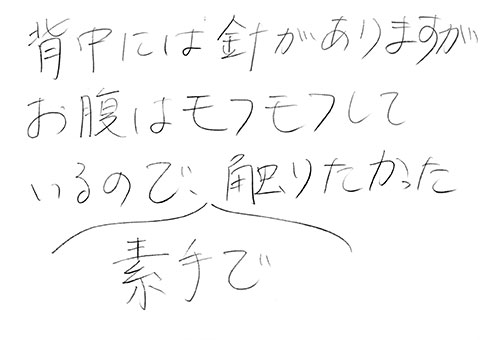 背中には針がありますが
お腹はモフモフして
いるので、触りたかった
素手で